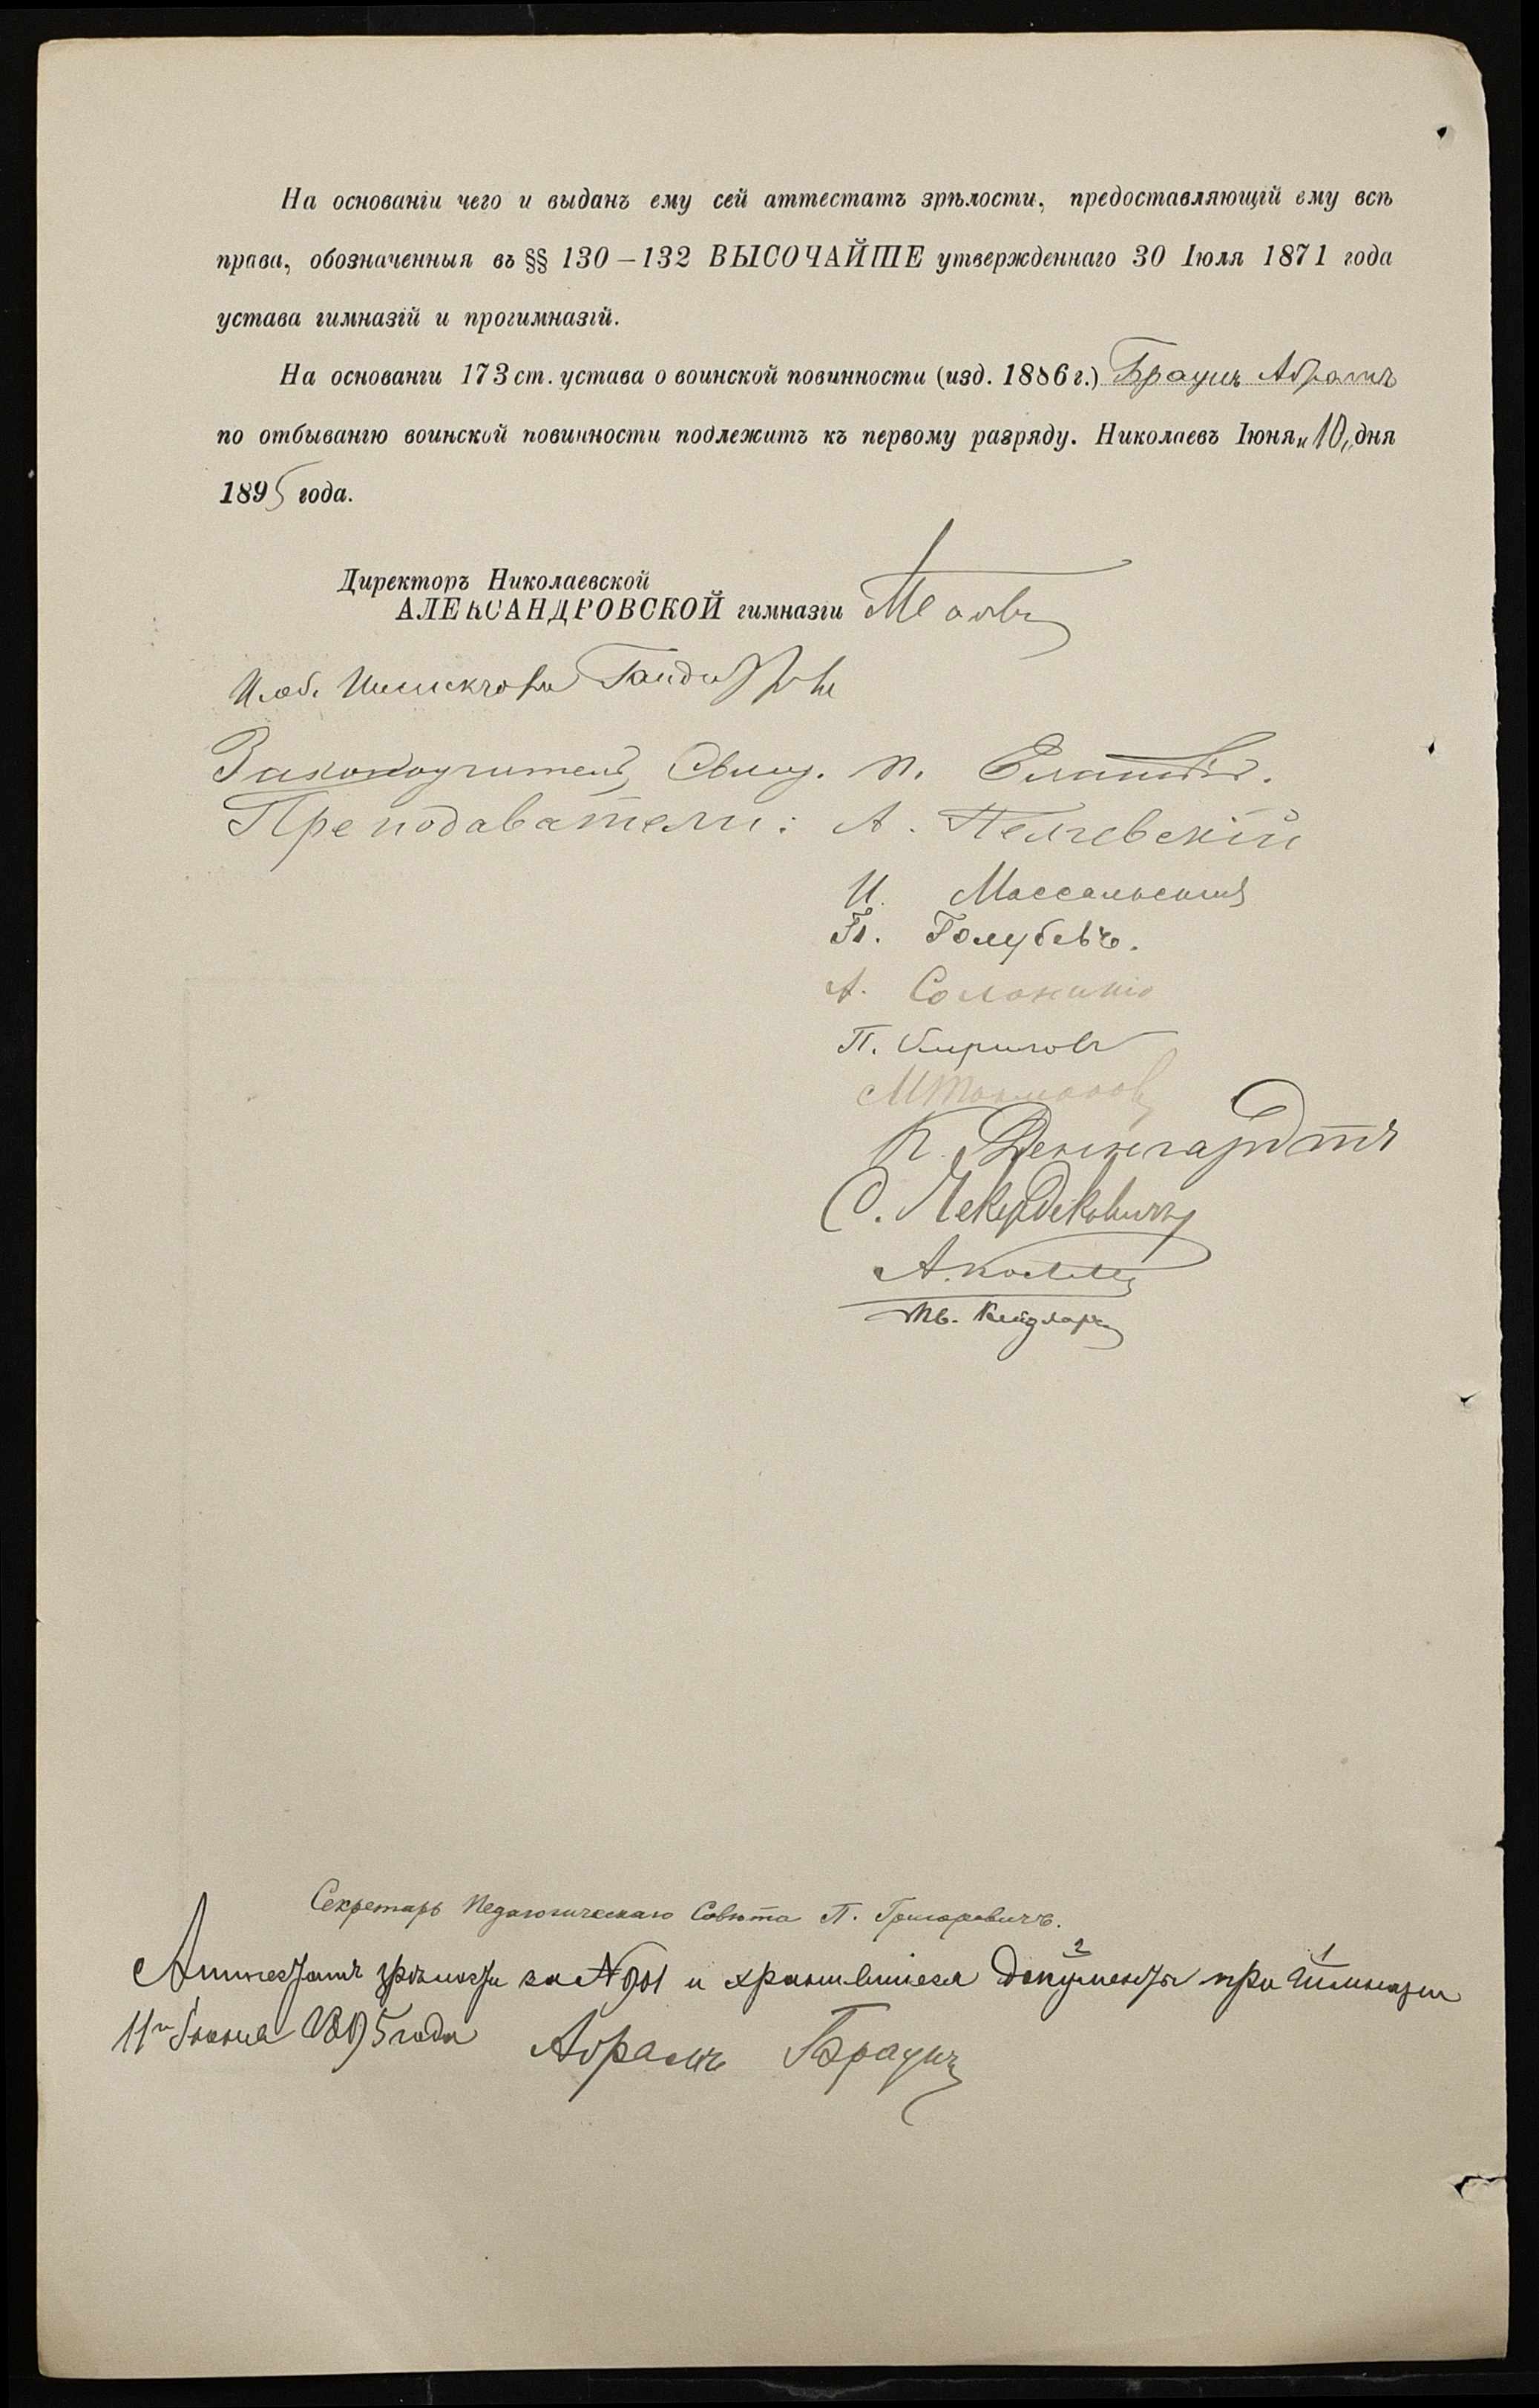 На основаніи чего и выданъ ему сей аттестатъ зрѣлости, предоставляющій ему всѣ
права, обозначенныя въ §§ 130—132 ВЫСОЧАЙШЕ утвержденнаго 30 Іюля 1871 года
устава гимназій и прогимназій.
На основаніи 173 ст. устава о воинской повинности (изд. 1886 г.) Браунъ Абрамъ
по отбыванію воинской повинности подлежитъ къ первому разряду. Николаевъ Іюня „10„ дня
1895 года.
Директоръ Николаевской
АЛЕКСАНДРОВСКОЙ гимназіи
И. об. Инспектора
Законоучитель, Свящ. П.
Преподаватели: А.
И. Массальскій
Гл. Голубевъ.
А. Солонини
П. Кириловъ
М
К. Денигардтъ
С. Чекердековичъ
А.
Секретарь Педагогическаго Совѣта П. Григоровичъ.
Аттестатъ зрѣлости за № 901 и хранившіеся документы 2 при гимназіи 1
11го Іюня 1895 года Абрамъ Браунъ